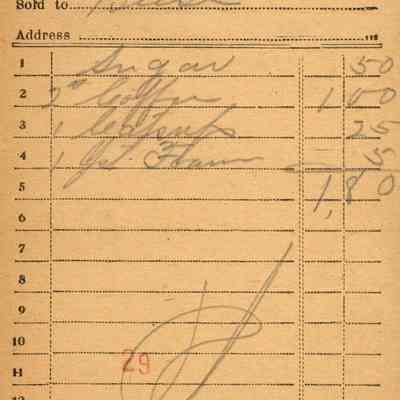 Sold to
Address
1 Sugar 50
2 2 # Coffee 1 00
3 1 Catsup 25
4 1 5
5 1,80
6
7
8
9
10
29
11
12